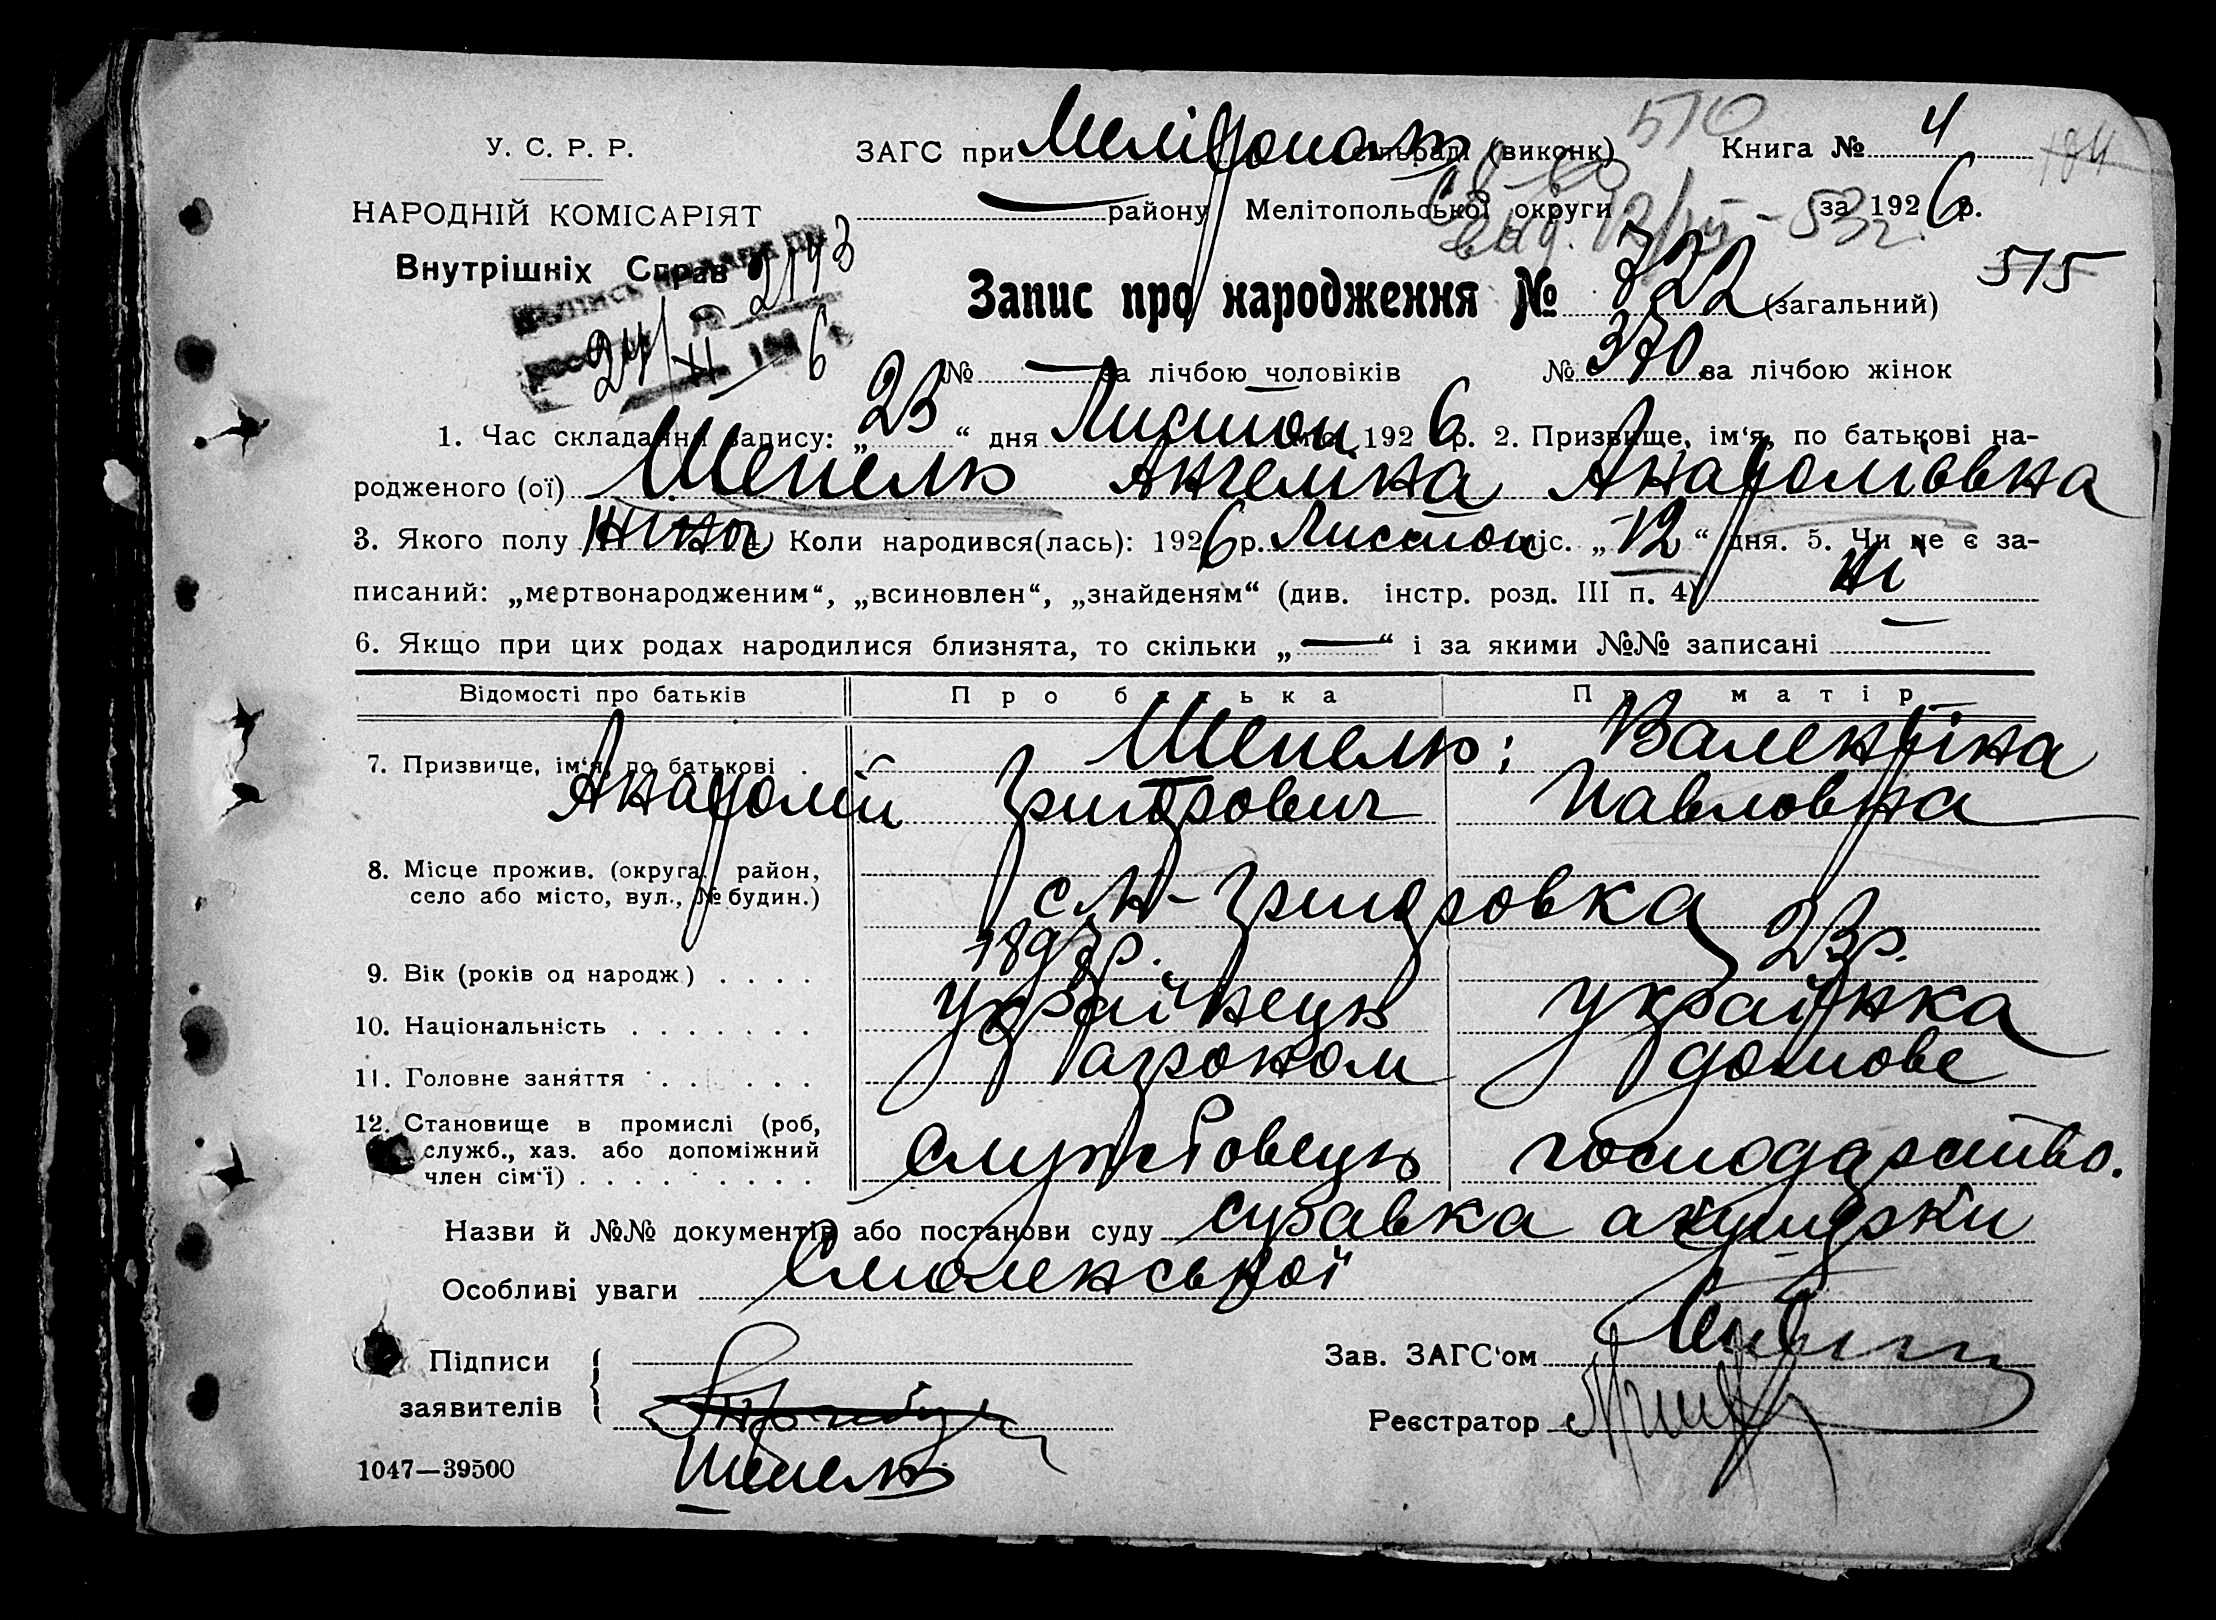 У. С. Р. Р.
НАРОДНІЙ КОМІСАРІЯТ
Внутрішніх Справ
2193
24/XI 1926
ЗАГС при Мелітополь сільраді (виконк) 510 Книга № 4
району Мелітопольської округи за 1926 р.
Запис про народження № 722 (загальний) 515
№ — за лічбою чоловіків № 370 за лічбою жінок
1. Час складання запису: „23“ дня Листоп. м-ця 1926 р. 2. Призвище, ім‘я, по батькові на-
родженого (ої) Шепель Ангеліна Анатоліівна
3. Якого полу жіноч 4. Коли народився(лась): 1926 р. Листоп міс. „12“ дня. 5. Чи не є за-
писаний: „мертвонародженим“, „всиновлен“, „знайденям“ (див. інстр. розд. III п. 4) ні
6. Якщо при цих родах народилися близнята, то скільки „—“ і за якими №№ записані
Відомості про батьків Про батька Про матір
7. Призвище, ім‘я, по батькові Шепель; Валентіна
Анатолій Григорович Павловна
8. Місце прожив. (округа, район,
село або місто, вул., № будин.) см-Григоровка
9. Вік (років од народж) 1897р. 23р.
10. Національність українець українка
11. Головне заняття агроном домове
12. Становище в промислі (роб,
служб., хаз. або допоміжний
член сім‘ї) службовець господарство.
Назви й №№ документів або постанови суду справка акушерки
Особливі уваги Смоленської
Підписи
заявителів
Шепель
Зав. ЗАГС‘ом
Реєстратор
1047—39500